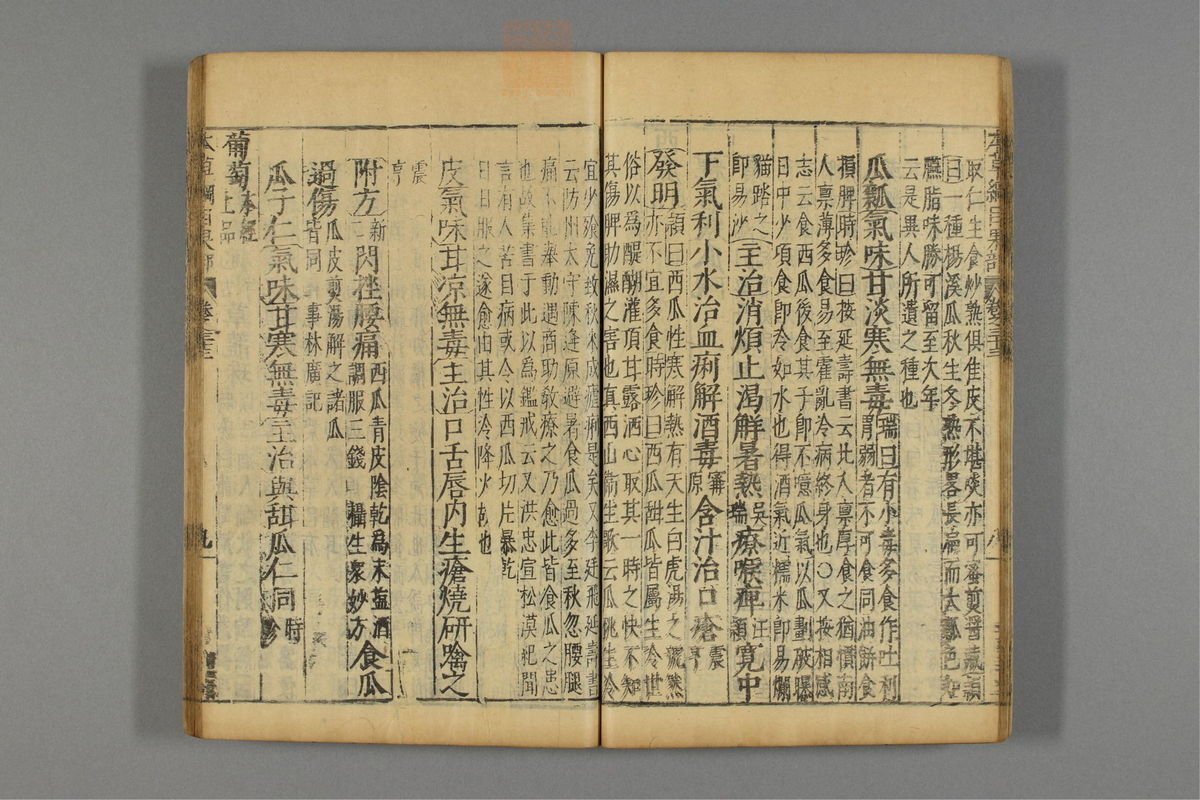 本草綱目果部 卷三十三 八
取仁生食炒熟俱佳皮不堪啖亦可蜜煎醬藏頴
曰一種楊溪瓜秋生冬熟形畧長扁而大瓤色如
臙脂味勝可留至次年
云是異人所遺之種也
瓜瓤氣味甘淡寒無毒瑞曰有小毒多食作吐利
胃弱者不可食同油餅食
損脾時珍曰按延壽書云北人稟厚食之猶慣南
人稟薄多食易至霍亂冷病終身也○又按相感
志云食西瓜後食其子即不噫瓜氣以瓜劃破曝
日中少項食即冷如水也得酒氣近糯米即易爛
猫踏之
即易沙
主治消煩止渴解暑熱吳瑞療喉痺汪頴寬中
下氣利小水治血痢解酒毒甯原含汁治口瘡震亨
發明頴曰西瓜性寒解熱有天生白虎湯之號然
亦不宜多食時珍曰西瓜甜瓜皆屬生冷世
俗以為醍醐灌頂甘露洒心取其一時之快不知
其傷脾助濕之害也真西山衛生歌云瓜桃生冷
宜少飱免致秋來成瘧痢是矣又李廷飛延壽書
云防州太守陳逢原避暑食瓜過多至秋忽腰腿
痛不能舉動遇商助教療之乃愈此皆食瓜之患
也故集書于此以為鑑戒云又洪忠宣松漠紀聞
言有人苦目病或令以西瓜切片暴乾
日日服之遂愈由其性冷降火故也
皮氣味甘凉無毒主治口舌唇内生瘡燒研噙之
震
亨
附方新二閃挫腰痛西瓜青皮陰乾為末鹽酒
調服三錢 攝生衆妙方食瓜
過傷瓜皮煎湯解之諸瓜
皆同 事林廣記
瓜子仁氣味甘寒無毒主治與甜瓜仁同時珍
葡萄本經
上品
本草綱目果部 卷三十三 九